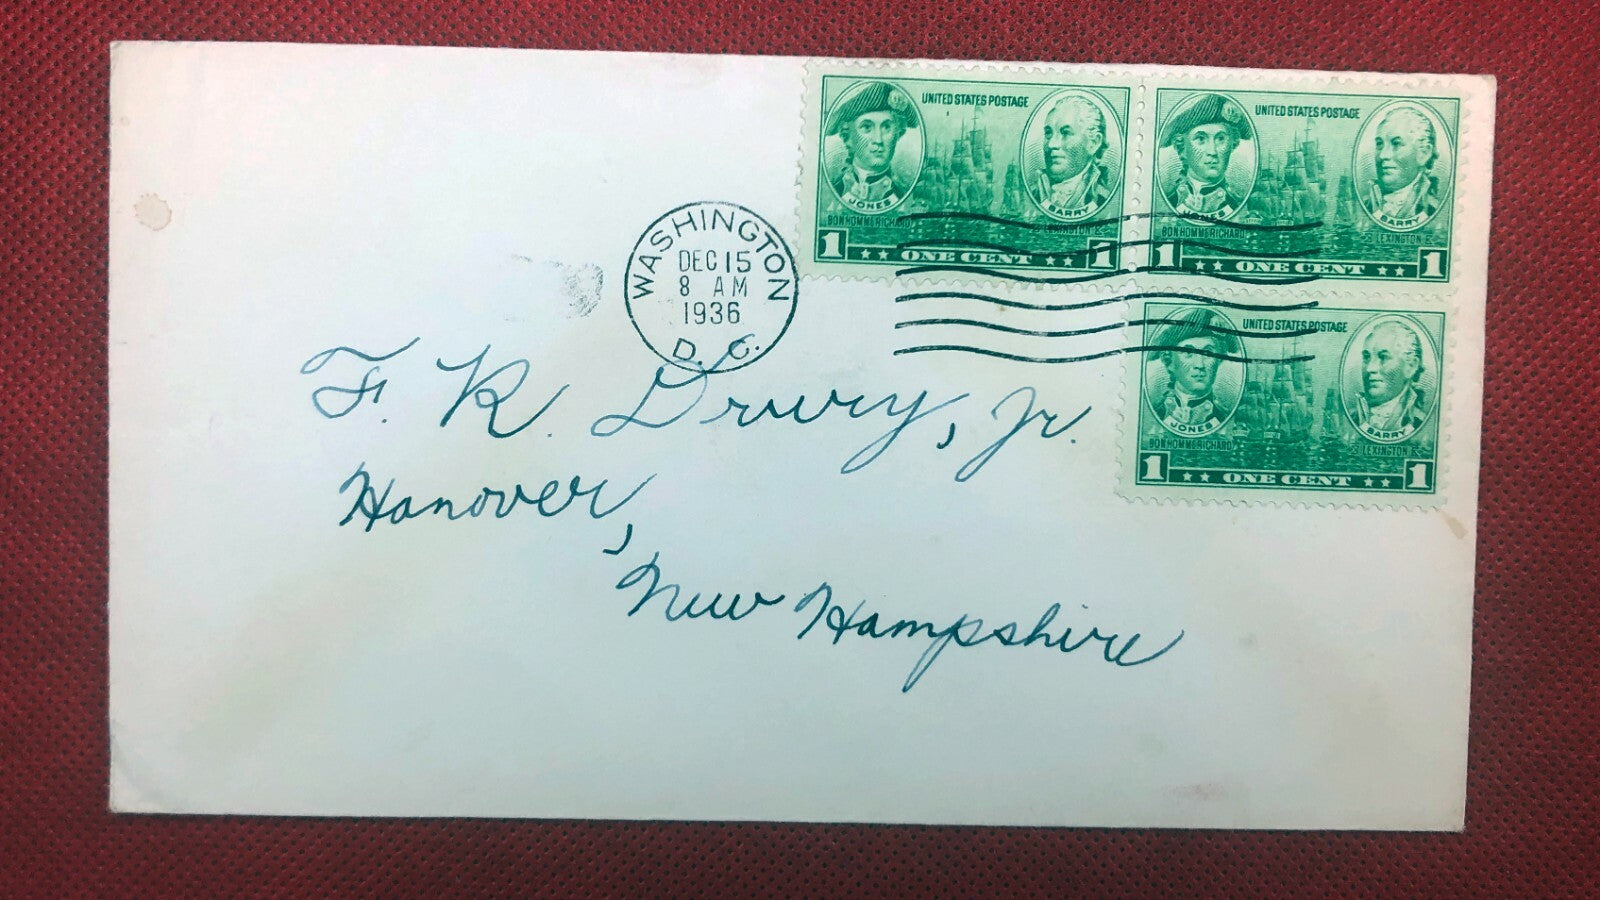 UNITED STATES POSTAGE
JONES
BARRY
BONHOMME RICHARD
LEXINGTON &
1 ★★ ONE CENT ★★ 1
UNITED STATES POSTAGE
JONES
BARRY
BONHOMME RICHARD
LEXINGTON &
1 ★★ ONE CENT ★★ 1
WASHINGTON
DEC 15
8 AM
1936
D. C.
UNITED STATES POSTAGE
JONES
BARRY
BONHOMME RICHARD
LEXINGTON &
1 ★★ ONE CENT ★★ 1
F. R. Drury, Jr.
Hanover,
New Hampshire